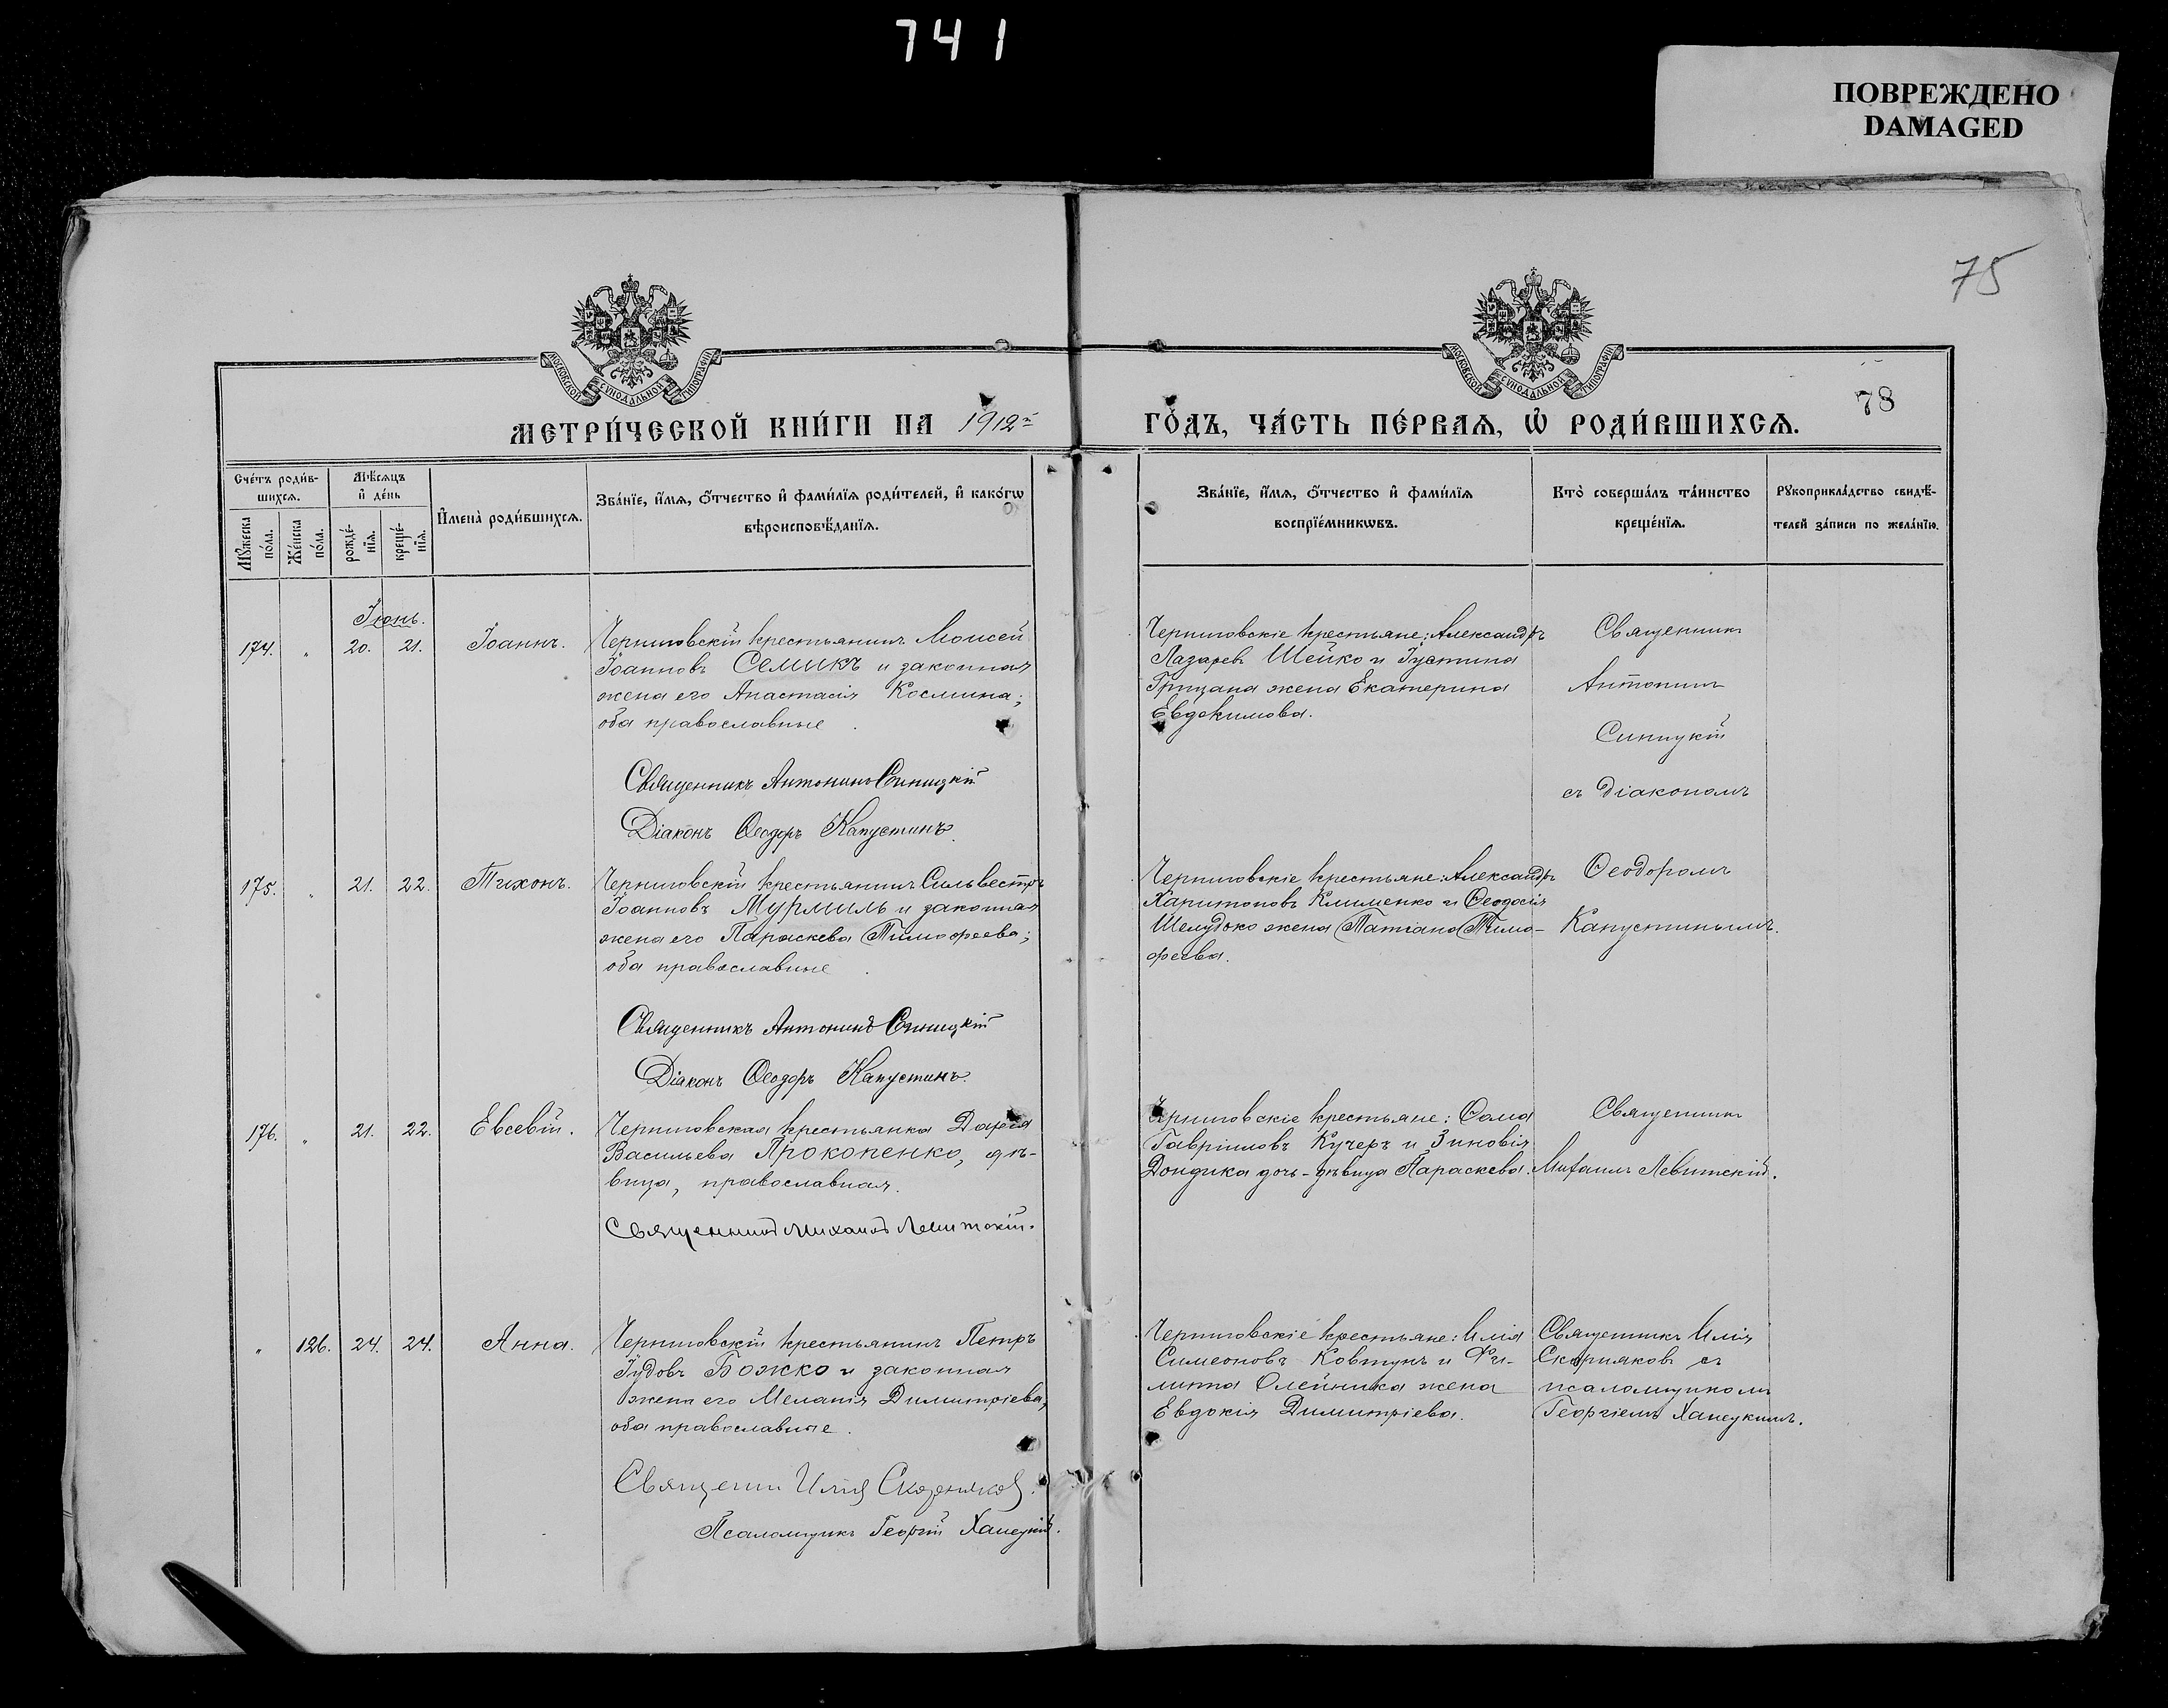 741
ПОВРЕЖДЕНО
DAMAGED
75
МОСКОВСКОЙ СѴНОДАЛЬНОЙ ТИПОГРАФІИ
МОСКОВСКОЙ СѴНОДАЛЬНОЙ ТИПОГРАФІИ
78
МЕТРИ́ЧЕСКОЙ КНИ́ГИ НА 1912й ГО́ДЪ, ЧА́СТЬ ПЕ́РВАЯ, Ѡ҆ РОДИ́ВШИХСЯ.
Сче́тъ роди́в-
шихся.
Мѣ́сяцъ
и҆ де́нь
Мꙋ́жеска
по́ла.
Же́нска
по́ла.
рожде́-
нїя.
креще́-
нїя.
И҆мена̀ роди́вшихся.
Зва́нїе, и҆́мя, ѻ҆́тчество и҆ фами́лїя роди́телей, и҆ како́гѡ
вѣроисповѣ́данїя.
Зва́нїе, и҆́мя, ѻ҆́тчество и҆ фами́лїя
воспрїе́мникѡвъ.
Кто̀ соверша́лъ та́инство
креще́нїя.
Рꙋкоприкла́дство свидѣ́-
телей за́писи по жела́нїю.
Іюнь.
174. " 20. 21. Іоаннъ.
Черниговскій крестьянинъ Моисей
Іоанновъ Семикъ и законная
жена его Анастасія Космина;
оба православные
Священникъ Антонинъ Синицкій
Діаконъ Ѳеодоръ Капустинъ.
Черниговскіе крестьяне: Александръ
Лазаревъ Шейко и Іустина
Грицана жена Екатерина
Евдокимова.
Священникъ
Антонинъ
Синицкій
съ діакономъ
Ѳеодоромъ
Капустинымъ.
175. " 21. 22. Тихонъ.
Черниговскій крестьянинъ Сильвестръ
Іоанновъ Мурмиль и законная
жена его Параскева Тимофеева;
оба православные
Священникъ Антонинъ Синицкій
Діаконъ Ѳеодоръ Капустинъ.
Черниговскіе крестьяне: Александръ
Харитоновъ Клименко и Ѳеодосія
Шелудько жена Татіана Тимо-
феева.
176. " 21. 22. Евсевій.
Черниговская крестьянка Дарія
Васильева Прокопенко, дѣ-
вица, православная.
Священникъ Михаилъ Левитскій.
Черниговскіе крестьяне: Ѳома
Гавріиловъ Кучеръ и Зиновія
Дондика дочь-дѣвица Параскева.
Священникъ
Михаилъ Левитскій.
" 126. 24. 24. Анна.
Черниговскій крестьянинъ Петръ
Іудовъ Божко и законная
жена его Меланія Димитріева,
оба православные.
Священн Илія Скорняковъ.
Псаломщикъ Георгій Ханецкій.
Черниговскіе крестьяне: Илія
Симеоновъ Ковтунъ и Фи-
липпа Олейника жена
Евдокія Димитріева.
Священникъ Илія
Скорняковъ съ
псаломщикомъ
Георгіемъ Ханецкимъ.